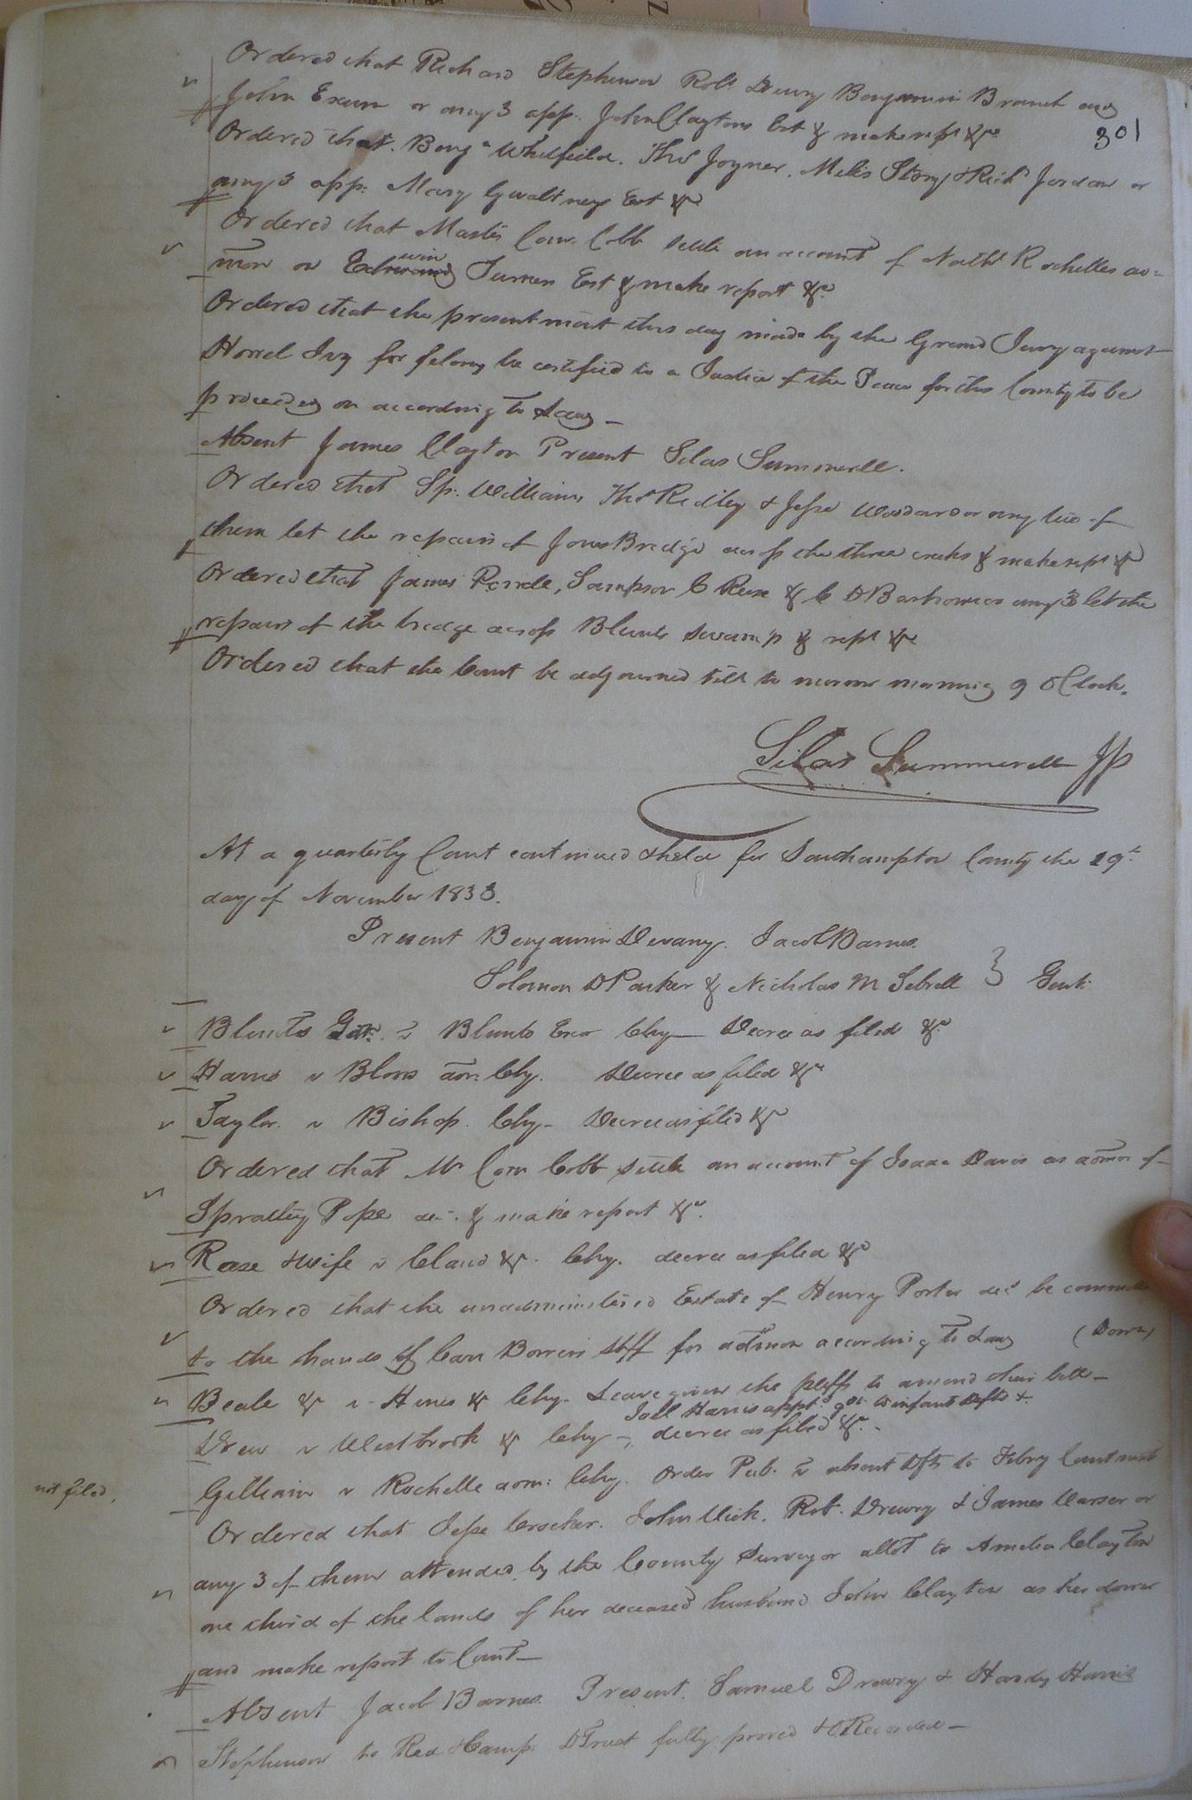 301
Ordered that Richard Stephenson Robt Drury Benjamin Branch and
John Exum or any 3 app. John Claytons Est & make rept &c
Ordered that Benja Whitfield, Thos Joyner, Miles Story & Richd Jordan or
any 3 app: Mary Gwaltneys Est &c
Ordered that Master Com. Cobb settle an account of Nathl Rochelles as
on Edwin Turners Est & make report &c
Ordered that the presentment this day made by the Grand Jury against
Ivy for felony be certified to a Justice of the Peace for this County to be
proceeded on according to Law —
Absent James Clayton Present Silas Summerell.
Ordered that Sp. Williams, Thos Ridley & Jesse Woodard or any two of
them let the repairs of Jones Bridge across the three creeks & make rept &c
Ordered that James Sampson C Reese & C D Barham or any 3 let the
repairs of the bridge across Blunts Swamp & rept &c
Ordered that the Court be adjourned till to morrow morning 9 OClock.
Silas Summerell JP
At a quarterly Court continued & held for Southampton County the 19th
day of November 1833.
Present Benjamin Devany. Jacob Barnes.
Solomon D Parker & Nicholas M Sebrell } Gent:
Blunts v Blunts Exor Chy — Decree as filed &c
Harris v Blows adm: Chy. Decree as filed &c
Taylor v Bishop Chy — Decree as filed &c
Ordered that Mr Com Cobb settle an account of Isaac Davis as admor of
Spratley Pope dec. & make report &c.
Rose & wife v Claud &c. Chy. decree as filed &c
Ordered that the unadministered Estate of Henry Porter decd be committed
to the hands of Carr Bowers Shff for admon according to Law (Down)
Beale &c v Hines &c Chy. Leave given the pltffs to amend their bill —
Joel Harris appt. gdn to infant Defts &
Drew v Westbrook &c Chy —, decree as filed &c. -
not filed.
Gilliam v Rochelle adm: Chy. Order Pub. v absent Dfts to Feby Court next
Ordered that Jesse Crocker. John Vick. Rob. Drewry & James or
any 3 of them attended by the County Surveyor allot to Amelia Clayton
one third of the lands of her deceased husband John Clayton as her dower
and make report to Court —
Absent Jacob Barnes Present. Samuel Drewry & Hardy Harris
Stephenson to Rea & Camp DTrust fully proved & ORecorded —